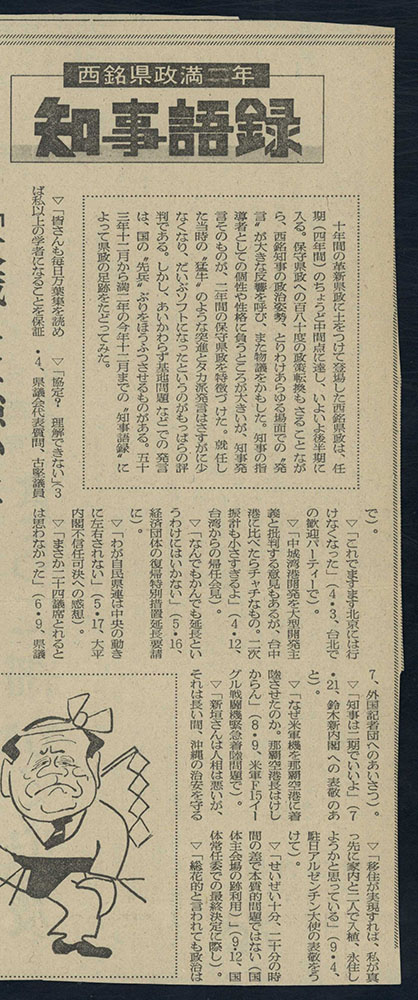 西銘県政満二年
知事語録
十年間の革新県政に土をつけて登場した西銘県政は、任
期(四年間)のちょうど中間点に達し、いよいよ後半期に
入る。保守県政への百八十度の政策転換もさることなが
ら、西銘知事の政治姿勢、とりわけあらゆる場面での〝発
言〟が大きな反響を呼び、また物議をかもした。知事の指
導者としての個性や性格に負うところが大きいが、知事発
言そのものが、二年間の保守県政を特徴づけた。就任し
た当時の〝猛牛〟のような突進とタカ派発言はさすがに少
なくなり、だいぶソフトになったというのがもっぱらの評
判である。しかし、あいかわらず基地問題などでの発言
は、国の〝先兵〟ぶりをほうふつさせるものがある。五十
三年十二月から満二年の今年十二月までの〝知事語録〟に
よって県政の足跡をたどってみた。
▽「皆さんも毎日万葉集を読め
ば私以上の学者になることを保証
▽「協定?理解できない」(3
・4、県議会代表質問、古堅議員
で)。
▽「これでますます北京には行
けなくなった」(4・3、台北で
の歓迎パーティーで)。
▽「中城湾港開発を大型開発主
義と批判する意見もあるが、台中
港に比べたらチャチなもの。二次
振計も小さすぎるよ」(4・12、
台湾からの帰任会見)。
▽「なんでもかんでも延長とい
うわけにはいかない」(5・16、
経済団体の復帰特別措置延長要請
に)。
▽「わが自民県連は中央の動き
に左右されない」(5・17、大平
内閣不信任可決への感想)。
▽「まさか二十四議席とれると
は思わなかった」(6・9、県議
7、外国記者団へのあいさつ)。
▽「知事は二期でいいよ」(7
・21、鈴木新内閣への表敬のあ
と)。
▽「なぜ米軍機を那覇空港に着
陸させたのか。那覇空港長はけし
からん」(8・9、米軍F15イー
グル戦闘機緊急着陸問題で)。
▽「新垣さんは人相は悪いが、
それは長い間、沖縄の治安を守る
▽「移住が実現すれば、私が真
っ先に家内と二人で入植、永住し
ようかと思っている」(9・4、
駐日アルゼンチン大使の表敬をう
けて)。
▽「せいぜい十分、二十分の時
間の差で本質的問題ではない(国
体主会場の跡利用)」(9・12、国
体常任委での最終決定に際し)。
▽「総花的と言われても政治は